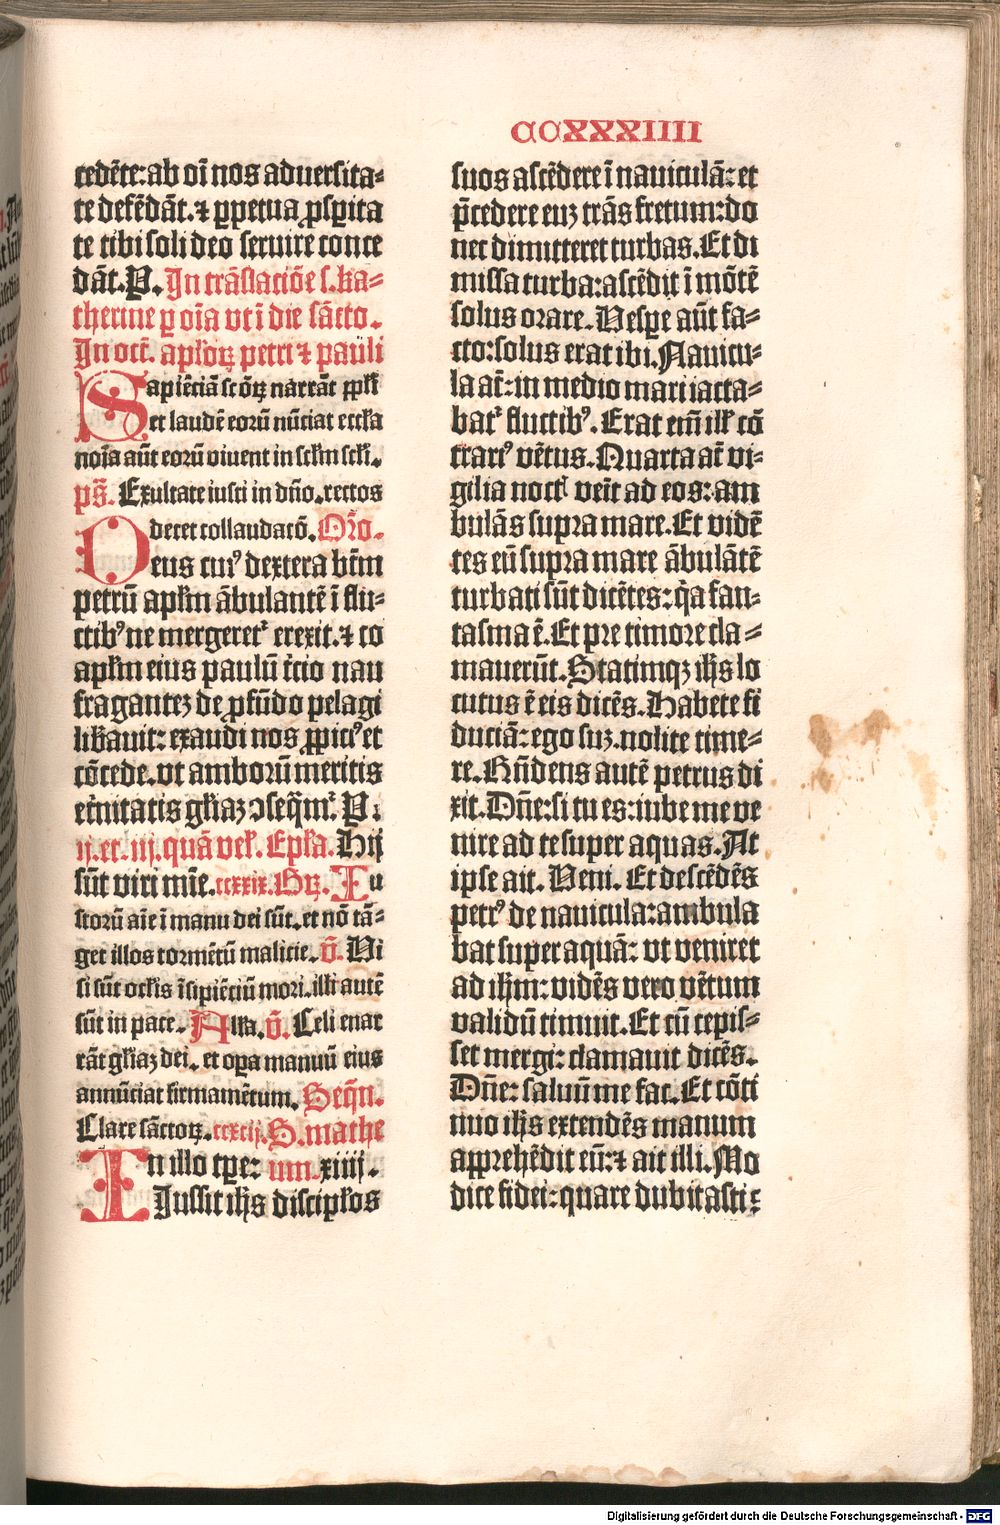 CCXXXIIII
cedēte: ab oī nos aduersita-
te defēdāt. ⁊ ꝑpetua ꝓspita
te tibi soli deo seruire conce
dāt. P. In trāslacōe s. ka-
therine ꝑ oīa vt ī die sācto.
In oct̄. apl'oꝝ petri ⁊ pauli
Sapiēciā sc̄oꝝ narrāt ppl'i
et laudē eorū nūciat eccl'a
noīa aūt eorū viuent in sc̄l'm sc̄l'i.
ps̄. Exultate iusti in dn̄o. rectos
decet collaudacō. Orō.
Deus cuiꝰ dextera btm̄
petrū apl'm ābulantē ī flu-
ctibꝰ ne mergeretᷣ erexit. ⁊ co
apl'm eius paulū t̄cio nau
fraganteꝫ de ꝓfūdo pelagi
lib'auit: exaudi nos ꝓpiciꝰ et
cōcede. vt amborū meritis
et̄nitatis gl'iaꝫ ↄseq̄mᷣ. P.
ij. et. iij. quā vel'. Epl'a. Hij
sūt viri mīe. ccxxix. Gꝝ. Iu
storū aīe ī manu dei sūt. et nō tā-
get illos tormētū malicie. v̄. Vi
si sūt ocl'is īsipiēciū mori. illi autē
sūt in pace. All'a. v̄. Celi enar
rāt gl'iaꝫ dei. et opa manuū eius
annūciat firmamētum. Seqn̄.
Clare sāctoꝝ. ccxcij. S. mathe
In illo tꝑe: um. xiiij.
Iussit ih's discipl'os
suos ascēdere ī nauiculā: et
p̄cedere euꝫ trās fretum: do
nec dimitteret turbas. Et di
missa turba: ascēdit ī mōtē
solus orare. Vespe aūt fa-
cto: solus erat ibi. Nauicu-
la at̄: in medio mari iacta-
batᷣ fluctibꝰ. Erat em̄ ill' cō
trariꝰ vētus. Quarta at̄ vi-
gilia noct' veīt ad eos: am
bulās supra mare. Et vidē
tes eū supra mare ābulātē
turbati sūt dicētes: q̇a fan-
tasma ē. Et pre timore cla-
mauerūt. Statimqꝫ ih's lo
cutus ē eis dicēs. Habete fi
duciā: ego suꝫ. nolite time-
re. Rn̄dens autē petrus di
xit. Dn̄e: si tu es: iube me ve
nire ad te super aquas. At
ipse ait. Veni. Et descēdēs
petrꝰ de nauicula: ambula
bat super aquā: vt veniret
ad ih'm: vidēs vero vētum
validū timuit. Et cū cepis-
set mergi: clamauit dicēs.
Dn̄e: saluū me fac. Et cōti
nuo ih's extendēs manum
apprehēdit eū: ⁊ ait illi. Mo
dice fidei: quare dubitasti:
Digitalisierung gefördert durch die Deutsche Forschungsgemeinschaft - DFG